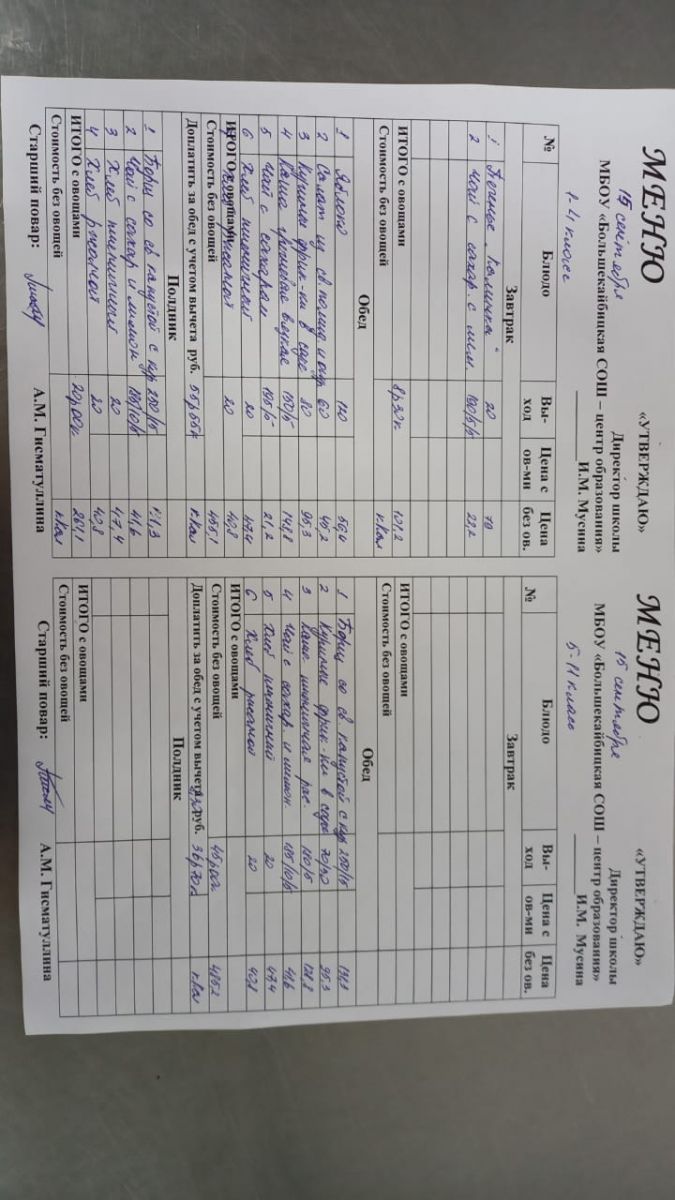 МЕНЮ «УТВЕРЖДАЮ»
15 сентября Директор школы
МБОУ «Большекайбицкая СОШ – центр образования»
1-4 класс И.М. Мусина
№ Блюдо Вы-ход Цена с ов-ми Цена без ов.
Завтрак
1 Печенье „Калинка" 20 79
2 Чай с сахар. с лим.
ИТОГО с овощами 8р30к 101,2
Стоимость без овощей к.кал
Обед
1 Яблоко 120 56,4
2 Салат из св. помид и огур 60 45,2
3 Куриные фрик-ки в соусе 80 95,3
4 Каша 150/5 148,8
5 Чай с сахаром 195/5 21,2
6 Хлеб пшеничный 20 47,4
ИТОГО с овощами 20 40,8
Стоимость без овощей 455,1
Доплатить за обед с учетом вычета руб. 55р55к к.кал
Полдник
1 Борщ со св капустой с кур 250/15
2 Чай с сахар и лимон 41,6
3 Хлеб пшеничный 20 47,4
4 Хлеб ржаной 20 40,8
ИТОГО с овощами 20р00к 261,1
Стоимость без овощей к.кал
Старший повар: А.М. Гисматуллина
МЕНЮ «УТВЕРЖДАЮ»
15 сентября Директор школы
МБОУ «Большекайбицкая СОШ – центр образования»
5-11 класс И.М. Мусина
№ Блюдо Вы-ход Цена с ов-ми Цена без ов.
Завтрак
ИТОГО с овощами
Стоимость без овощей
Обед
1 Борщ со св капустой с кур 250/15 131,3
2 Куриные фрик-ки в соусе 95,3
3 Каша пшеничная рас. 128,8
4 Чай с сахар. и лимон. 185/10/5 41,6
5 Хлеб пшеничный 20 47,4
6 Хлеб ржаной 20 40,8
ИТОГО с овощами
Стоимость без овощей 45р00к 485,2
Доплатить за обед с учетом вычета руб. 36р70к к.кал
Полдник
ИТОГО с овощами
Стоимость без овощей
Старший повар: А.М. Гисматуллина